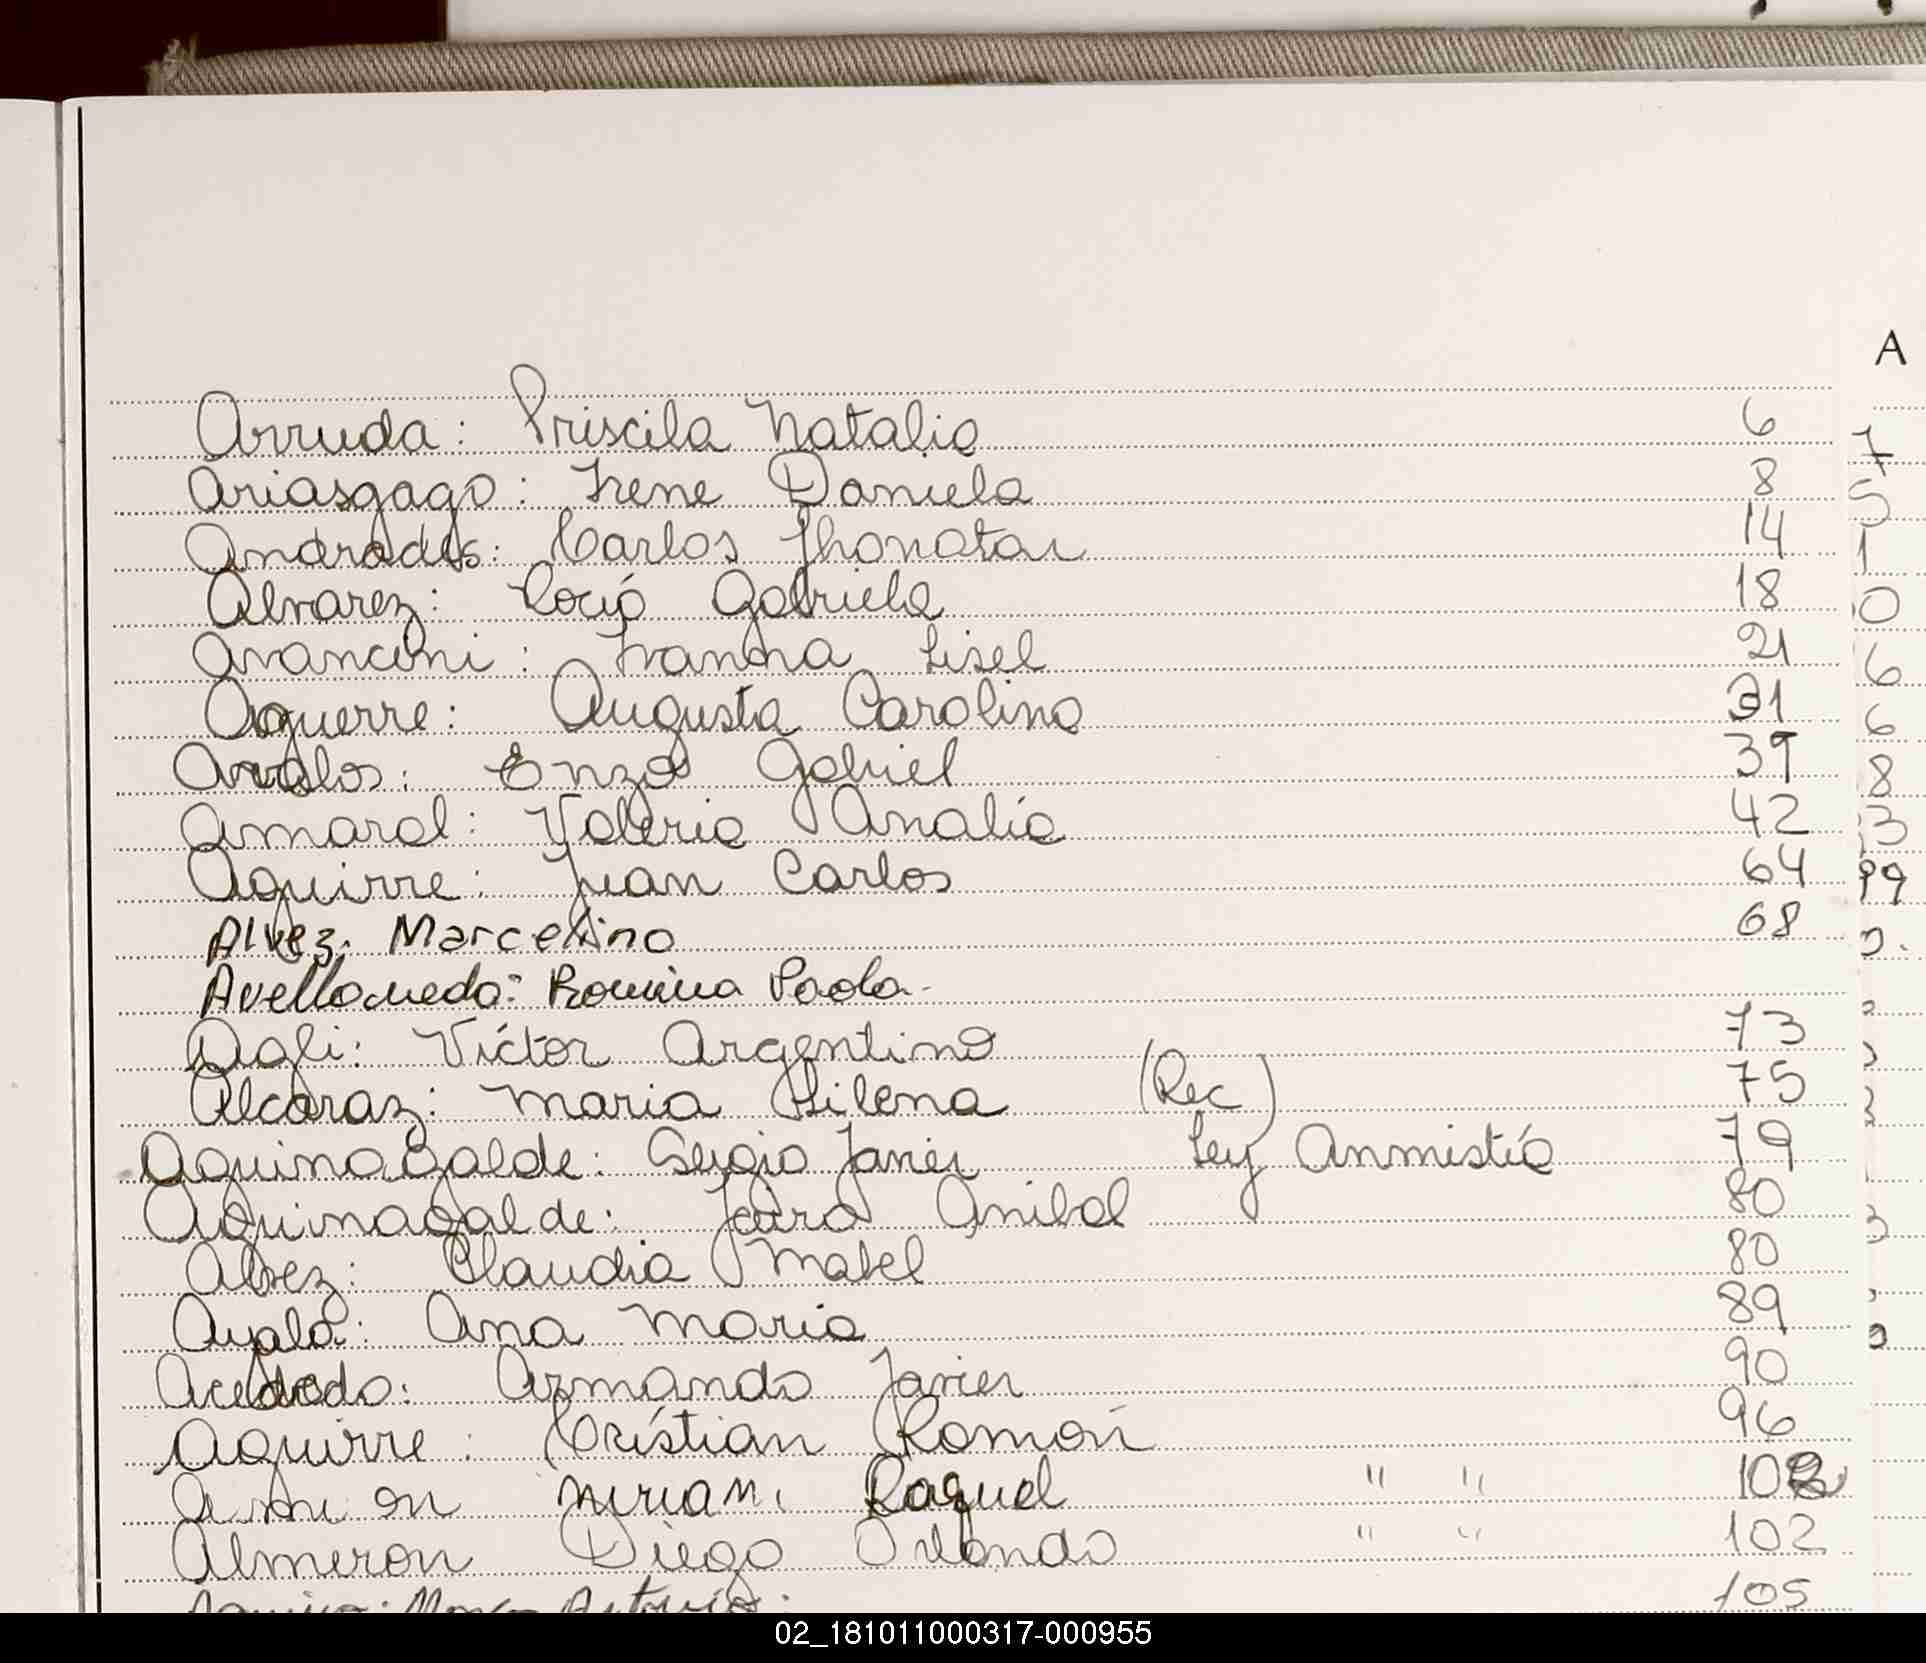 A
Arruda: Priscila Natalia 6
Ariasgago: Irene Daniela 8
Andrades: Carlos Jhonatan 14
Alvarez: Rocío Gabriela 18
Avancini: Ivanna Lisel 21
Aguerre: Augusta Carolina 31
Avalos: Enzo Gabriel 39
Amaral: Valeria Analía 42
Aguirre: Juan Carlos 64
Alvez: Marcelino 68
Avellaneda: Romina Paola.
Agli: Víctor Argentino 73
Alcaraz: Maria Silena (Rec) 75
Aguinagalde: Sergio Javier Ley Anmistía 79
Aguinagalde: Jairo Anibal 80
Alvez: Claudia Mabel 80
Ayala: Ana Maria 89
Acevedo: Armando Javier 90
Aguirre: Cristian Ramón 96
Raquel " " 102
Almeron Diego Orlando " " 102
Antonio. 105
02_181011000317-000955